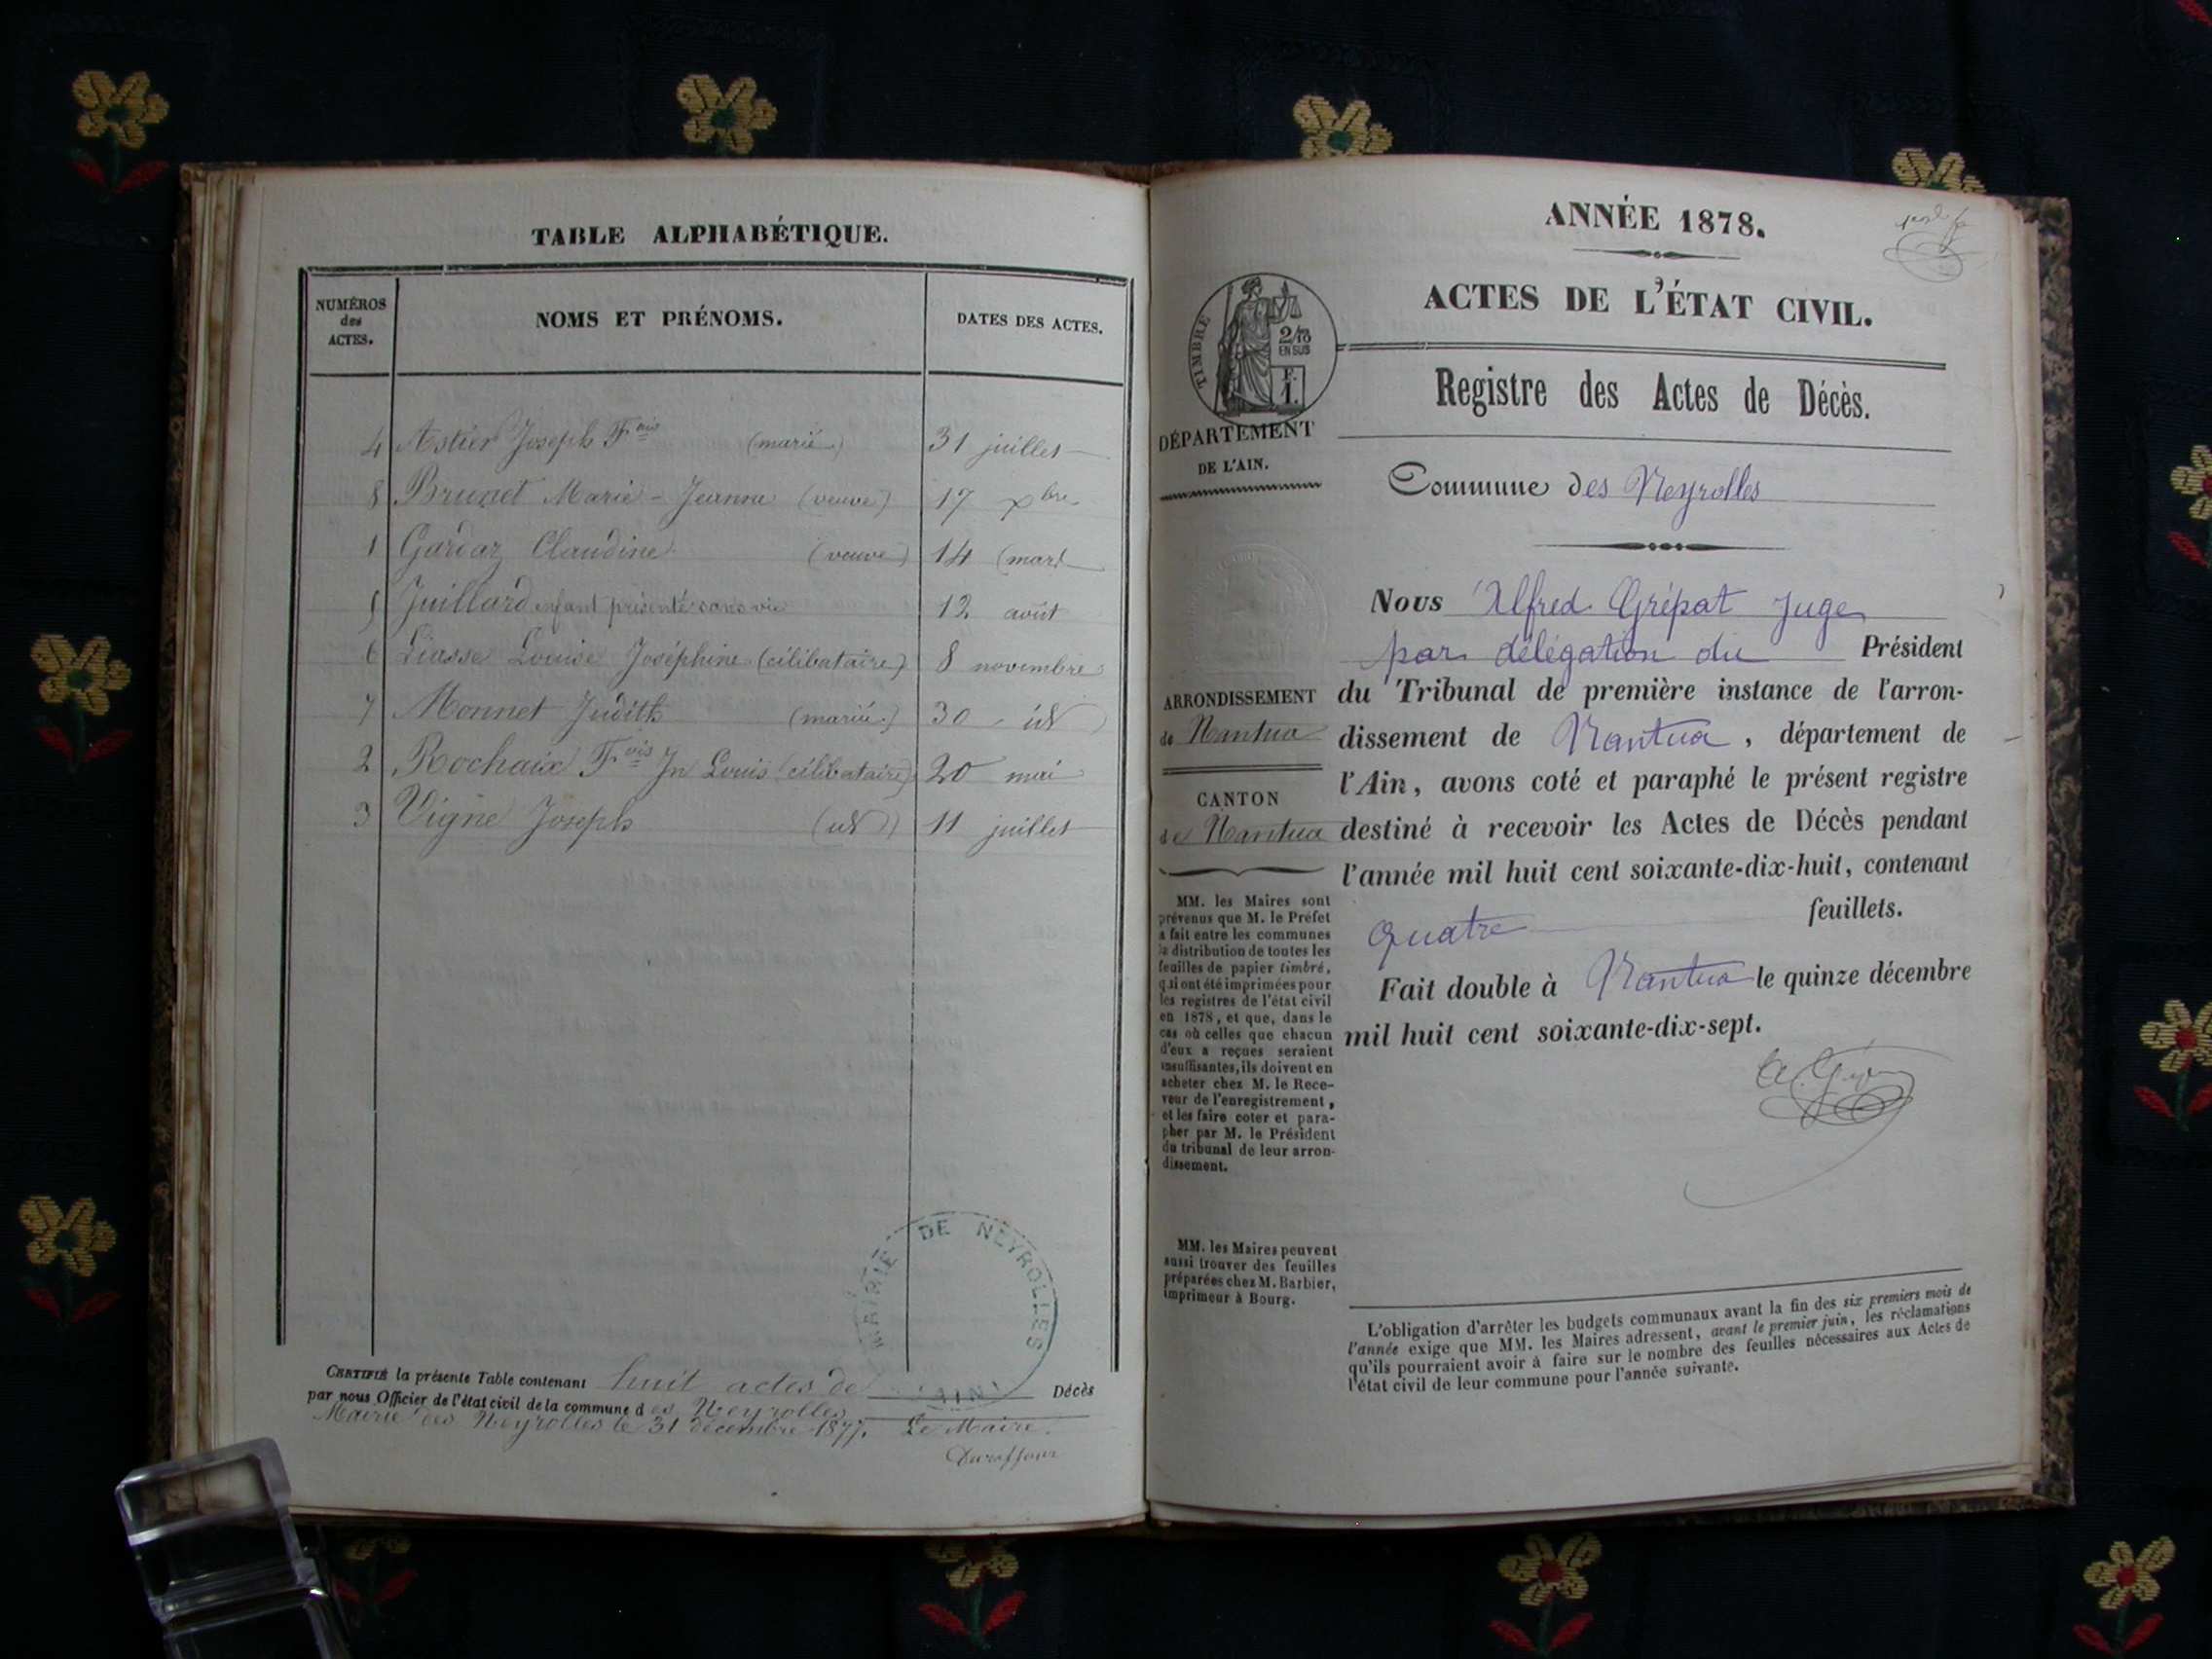 TABLE ALPHABÉTIQUE.
NUMÉROS
des
ACTES.
NOMS ET PRÉNOMS.
DATES DES ACTES.
4 Astier Joseph Fçois (marié) 31 juillet
8 Brunet Marie-Jeanne (veuve) 17 Xbre
1 Gardaz Claudine (veuve) 14 mars
5 Juillard enfant présenté sans vie 12 août
6 Liasse Louise Joséphine (célibataire) 8 novembre
7 Monnet Judith (mariée) 30 id
2 Rochaix Fçois Jn Louis (célibataire) 20 mai
3 Vigne Joseph (id) 11 juillet
MAIRIE DE NEYROLLES
(AIN)
CERTIFIÉ la présente Table contenant huit actes de Décès
par nous Officier de l'état civil de la commune des Neyrolles
Mairie des Neyrolles le 31 décembre 1877. Le Maire.
ANNÉE 1878.
ACTES DE L'ÉTAT CIVIL.
TIMBRE
2/10
EN SUS
F.
1.
Registre des Actes de Décès.
DÉPARTEMENT
DE L'AIN.
Commune des Neyrolles
Nous Alfred Grépat Juge
par délégation du Président
du Tribunal de première instance de l'arron-
dissement de Nantua, département de
l'Ain, avons coté et paraphé le présent registre
destiné à recevoir les Actes de Décès pendant
l'année mil huit cent soixante-dix-huit, contenant
quatre feuillets.
Fait double à Nantua le quinze décembre
mil huit cent soixante-dix-sept.
ARRONDISSEMENT
de Nantua
CANTON
de Nantua
MM. les Maires sont
prévenus que M. le Préfet
a fait entre les communes
la distribution de toutes les
feuilles de papier timbré,
qui ont été imprimées pour
les registres de l'état civil
en 1878, et que, dans le
cas où celles que chacun
d'eux a reçues seraient
insuffisantes, ils doivent en
acheter chez M. le Rece-
veur de l'enregistrement,
et les faire coter et para-
pher par M. le Président
du tribunal de leur arron-
dissement.
MM. les Maires peuvent
aussi trouver des feuilles
préparées chez M. Barbier,
imprimeur à Bourg.
L'obligation d'arrêter les budgets communaux avant la fin des six premiers mois de
l'année exige que MM. les Maires adressent, avant le premier juin, les réclamations
qu'ils pourraient avoir à faire sur le nombre des feuilles nécessaires aux Actes de
l'état civil de leur commune pour l'année suivante.